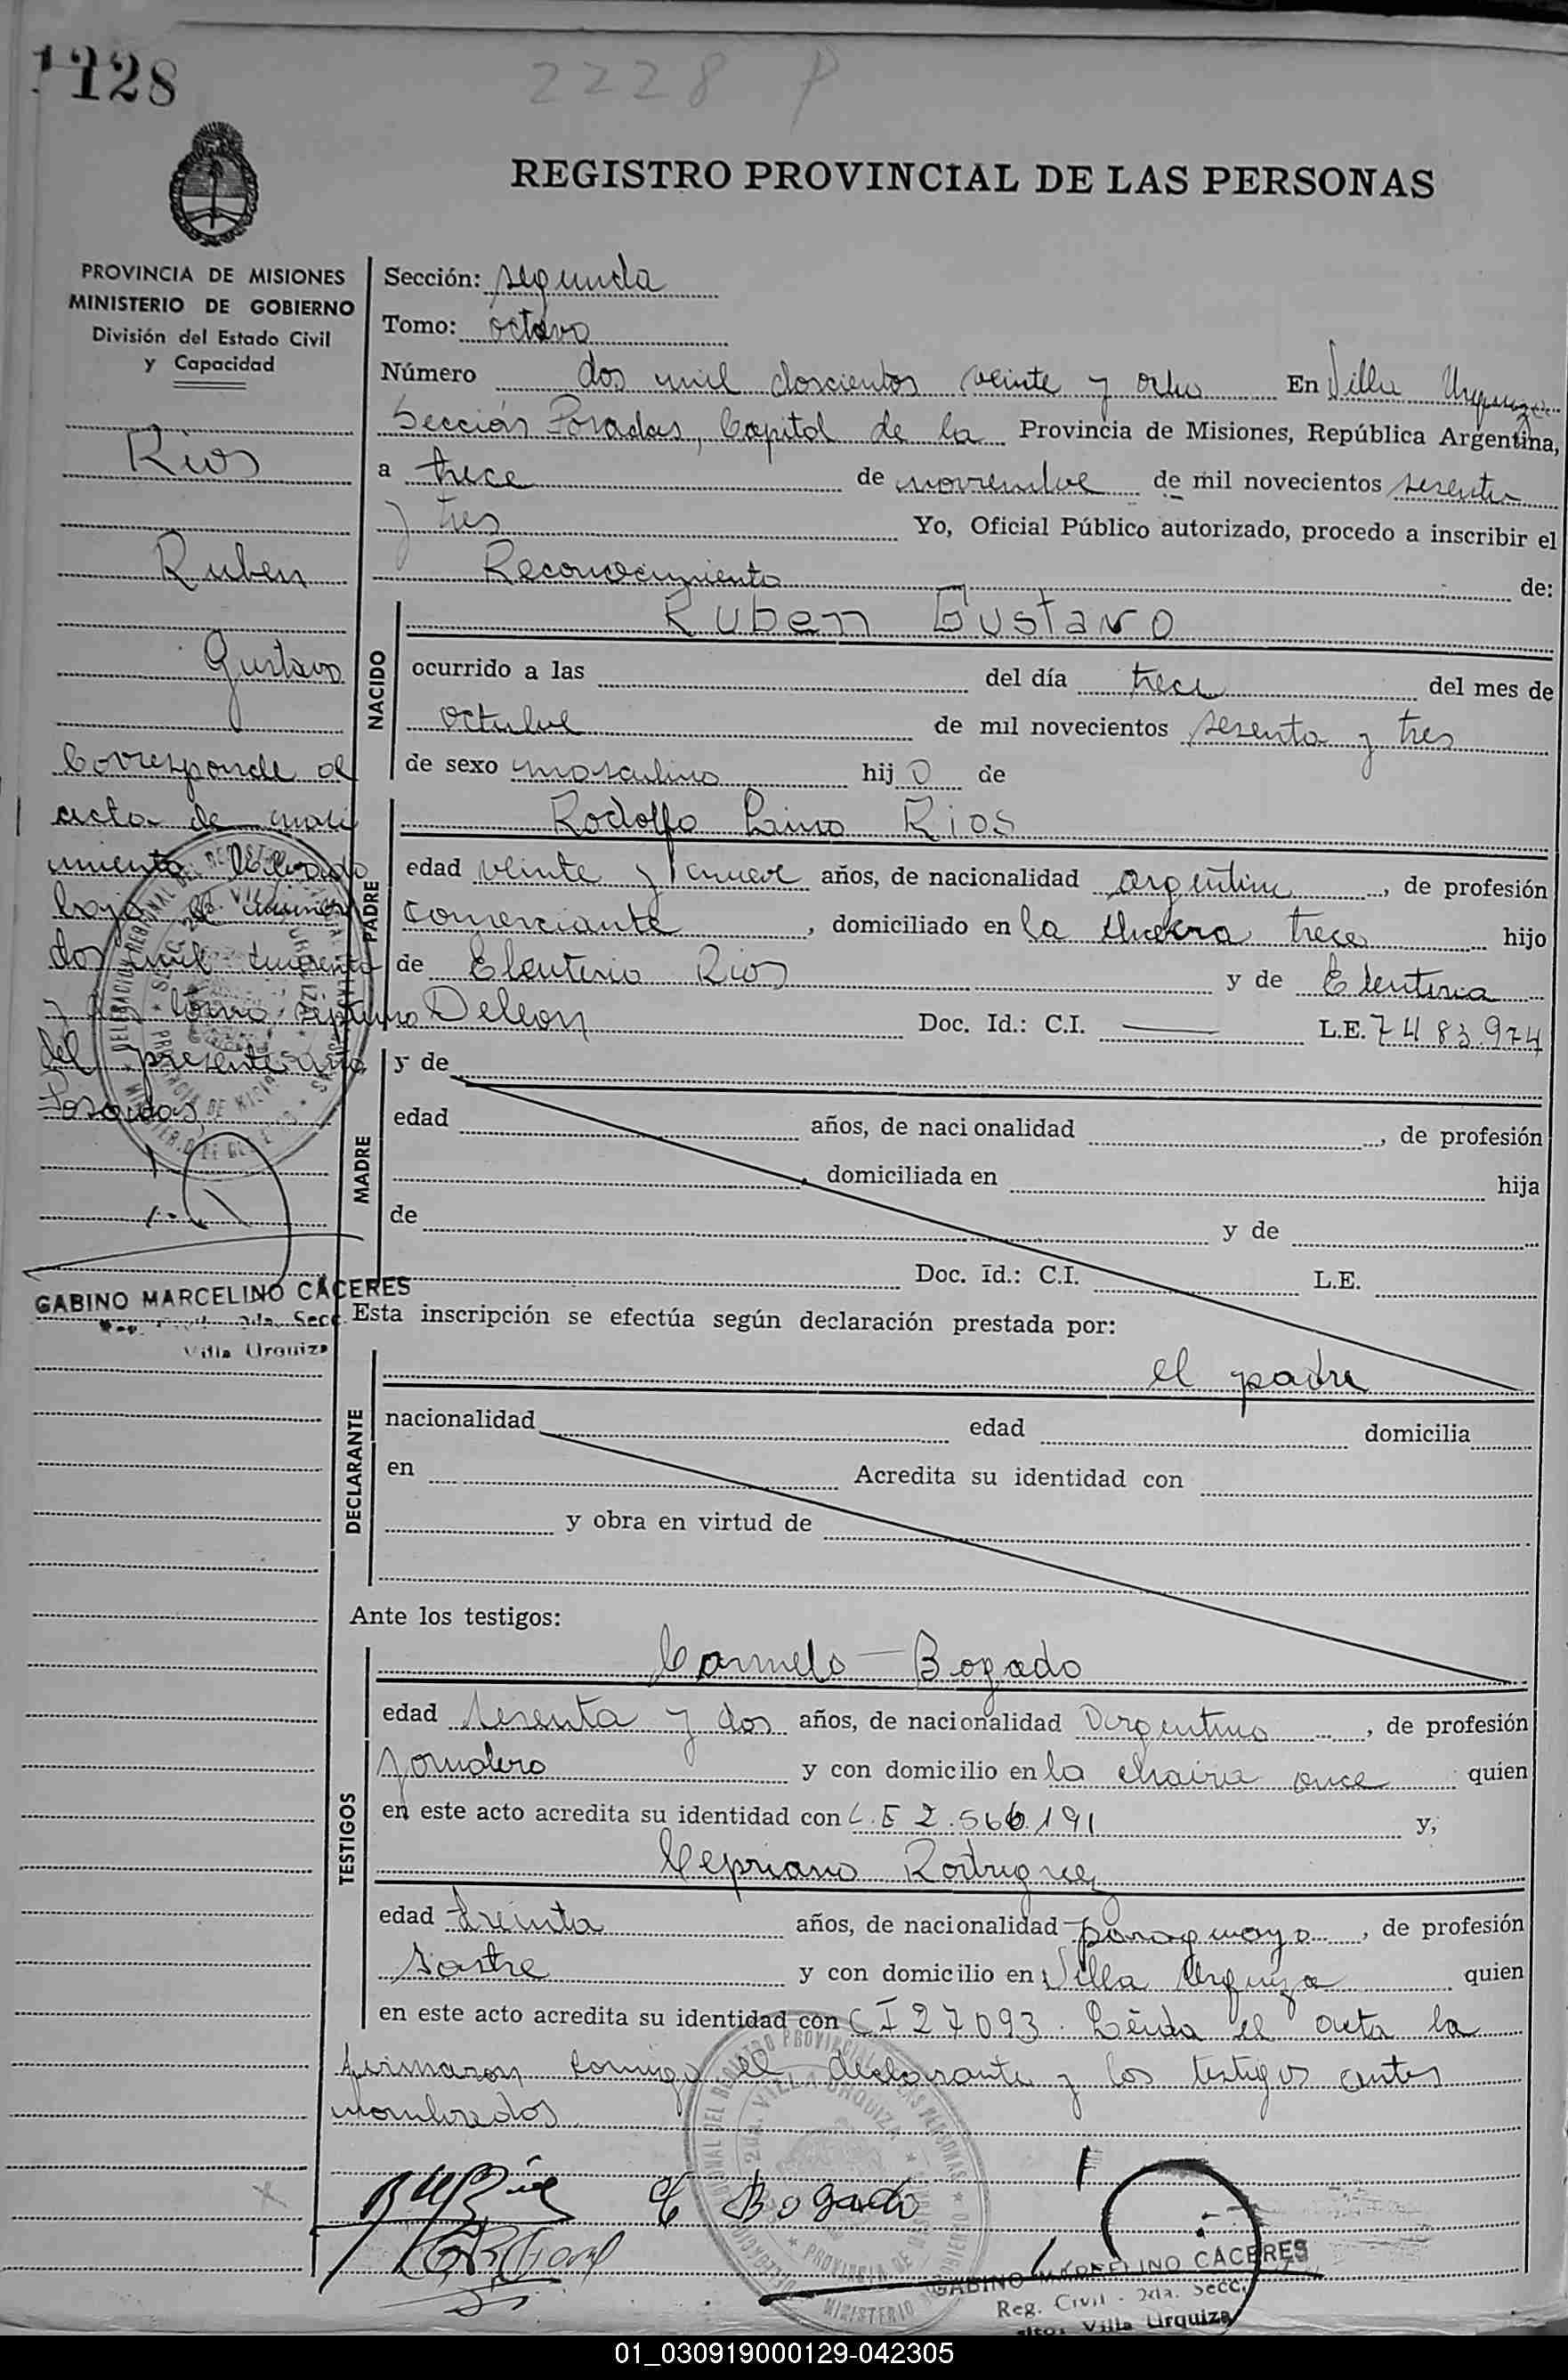 1228
2228 P
REGISTRO PROVINCIAL DE LAS PERSONAS
PROVINCIA DE MISIONES
MINISTERIO DE GOBIERNO
División del Estado Civil
y Capacidad
Rios
Ruben
Gustavo
Corresponde al
acta de naci
miento
bajo el número
dos mil
y tomo septimo
del presente año
Posadas,
GABINO MARCELINO CACERES
2da. Secc.
Villa Urquiza
Sección: segunda
Tomo: octavo
Número dos mil doscientos veinte y ocho En Villa Urquiza
Sección Posadas, Capital de la Provincia de Misiones, República Argentina,
a trece de noviembre de mil novecientos sesenta
y tres Yo, Oficial Público autorizado, procedo a inscribir el
Reconocimiento de:
NACIDO
Ruben Gustavo
ocurrido a las del día trece del mes de
octubre de mil novecientos sesenta y tres
de sexo masculino hijo de
PADRE
Rodolfo Lino Rios
edad veinte y nueve años, de nacionalidad argentino, de profesión
comerciante, domiciliado en la chacra trece hijo
de Eleuterio Rios y de Eleuteria
Deleon Doc. Id.: C.I. — L.E. 7483.974
MADRE
y de
edad años, de nacionalidad , de profesión
domiciliada en hija
de y de
Doc. Id.: C.I. L.E.
Esta inscripción se efectúa según declaración prestada por:
DECLARANTE
el padre
nacionalidad edad domicilia
en Acredita su identidad con
y obra en virtud de
Ante los testigos:
TESTIGOS
Carmelo Bogado
edad sesenta y dos años, de nacionalidad Argentino, de profesión
jornalero y con domicilio en la chacra once quien
en este acto acredita su identidad con L.E 2.566.191 y,
Cepriano Rodriguez
edad treinta años, de nacionalidad paraguayo, de profesión
Sastre y con domicilio en Villa Urquiza quien
en este acto acredita su identidad con C I 27093. Leida el acta la
firmaron comigo el declarante y los testigos antes
nombrados
C Bogado
GABINO MARCELINO CACERES
Reg. Civil - 2da. Secc.
Villa Urquiza
01_030919000129-042305